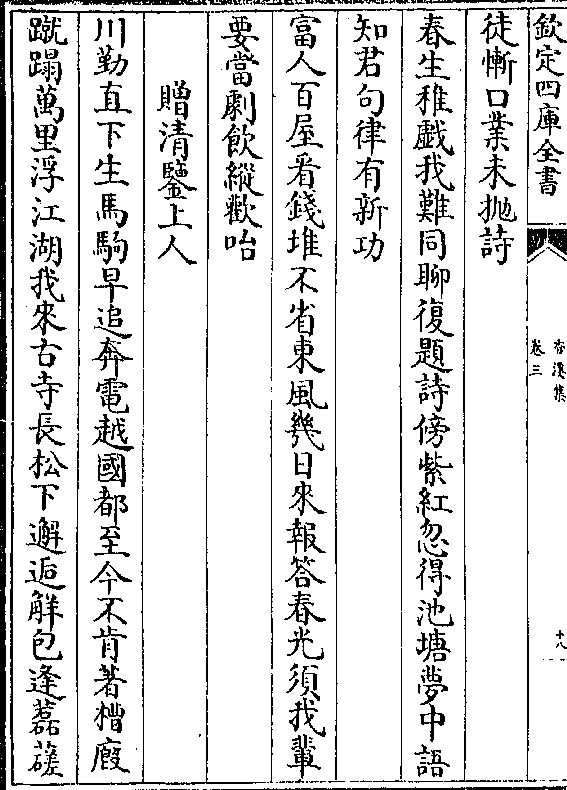 欽定四庫全書
香溪集
卷三
十八
徒慚口業未拋詩
春生稚戲我難同聊復題詩傍紫紅忽得池塘夢中語
知君句律有新功
富人百屋看錢堆不省東風幾日來報答春光須我輩
要當劇飲縱歡咍
贈清鑒上人
川勤直下生馬駒早追奔電越國都至今不肯著槽廄
蹴蹋萬里浮江湖我來古寺長松下邂逅解包逢磊磋